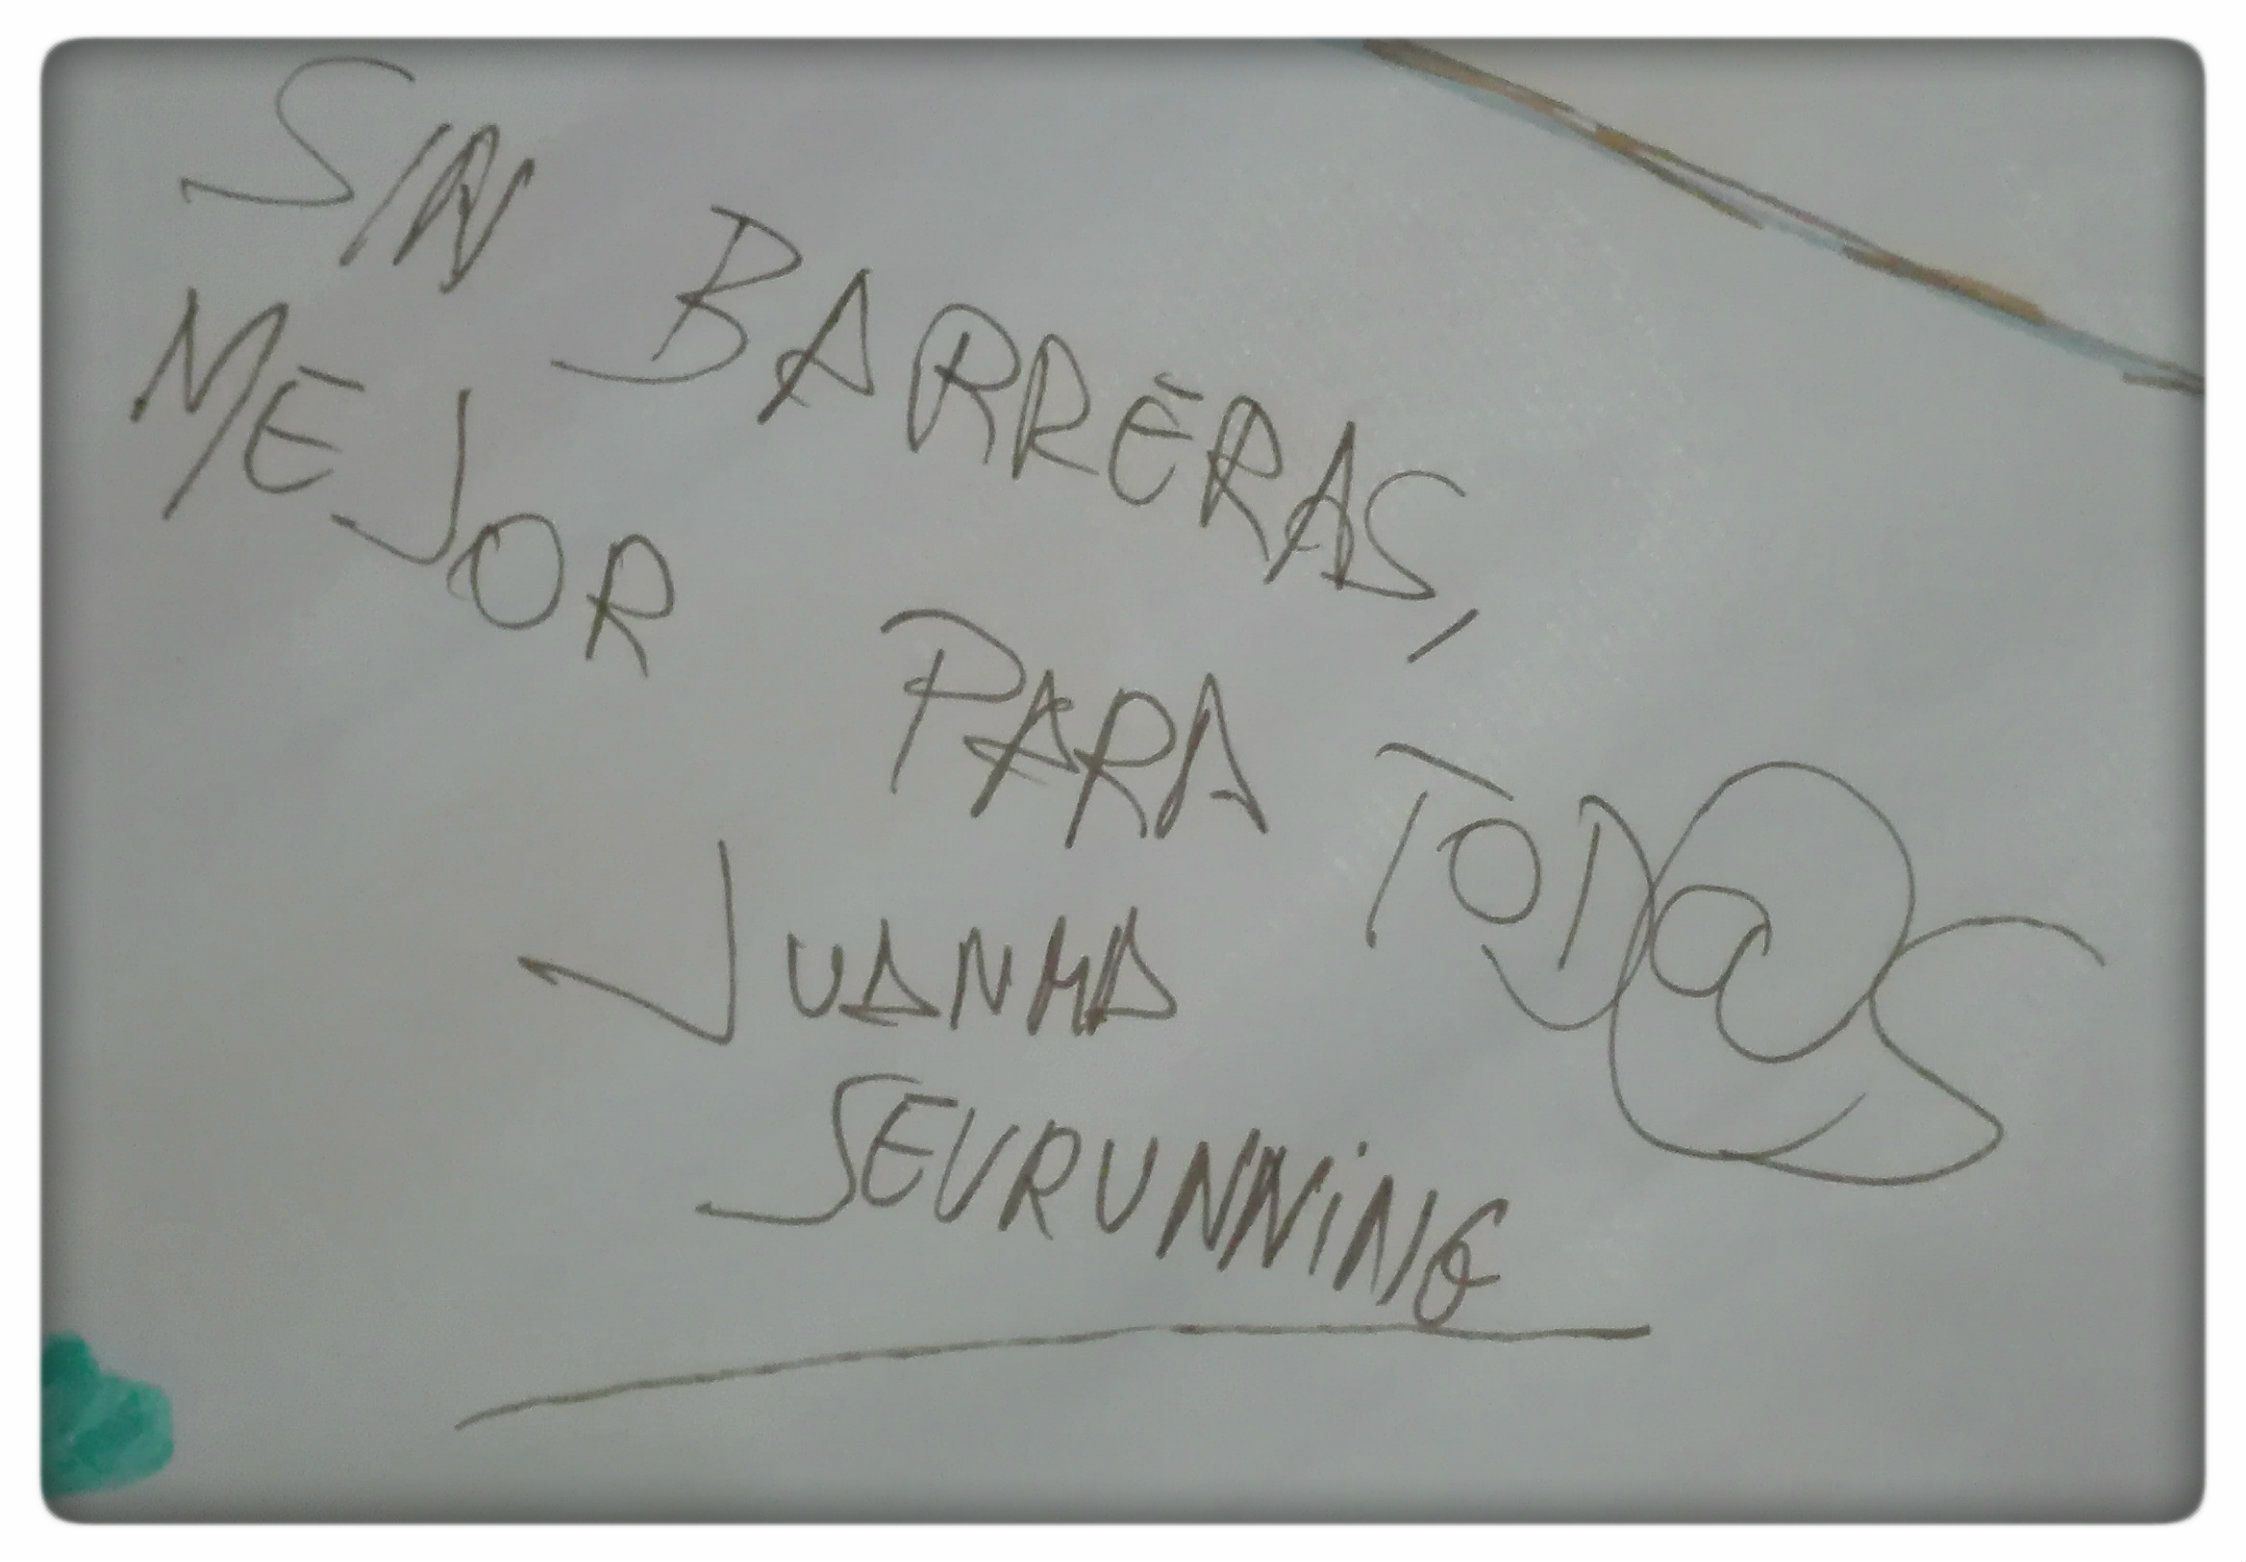 SIN BARRERAS,
MEJOR PARA TOD@S
JUANMA
SEVRUNNiNG